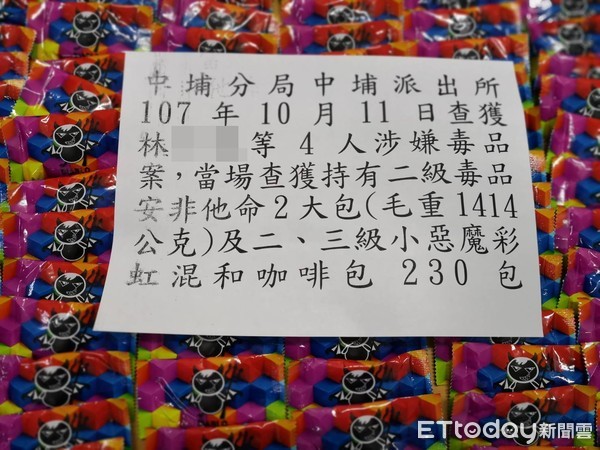 中埔分局中埔派出所
107 年 10 月 11 日查獲
林 等 4 人涉嫌毒品
案，當場查獲持有二級毒品
安非他命2大包(毛重1414
公克)及二、三級小惡魔彩
虹混和咖啡包 230 包
ETtoday新聞雲